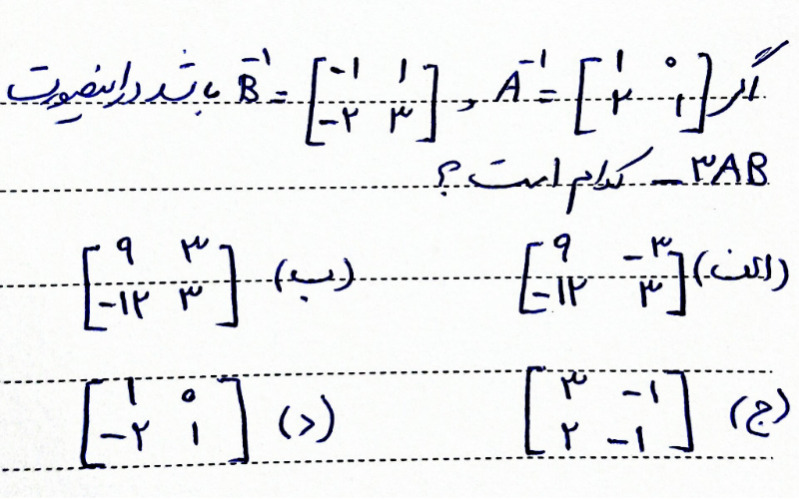 اگر A⁻¹ = [۱ ۰ ; ۲ ۱] , B⁻¹ = [-۱ ۱ ; -۲ ۳] باشد در اینصورت
-۳AB کدام است؟
الف) [۹ -۳ ; -۱۲ ۳] ب) [۹ ۳ ; -۱۲ ۳]
ج) [۳ -۱ ; ۲ -۱] د) [۱ ۰ ; -۲ ۱]